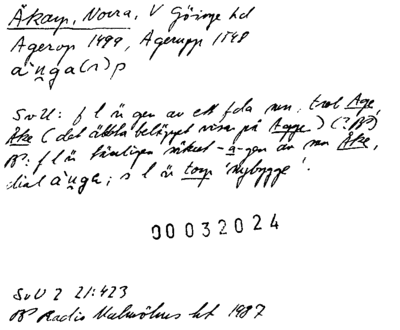 Åkarp, Norra, V Göinge hd
Agerop 1499, Agerupp 1548
à'nga(r)p
SvU: f l ä gen av ett fda mn, trol Age,
Åke (det äldsta belägget visar på Agge) (?, BP)
BP: f l är tämligen säkert -a-gen av mn Åke,
dial ; s l är torp 'nybygge'.
00032024
SvU 2 21:423
BP Radio Malmöhus ht 1987